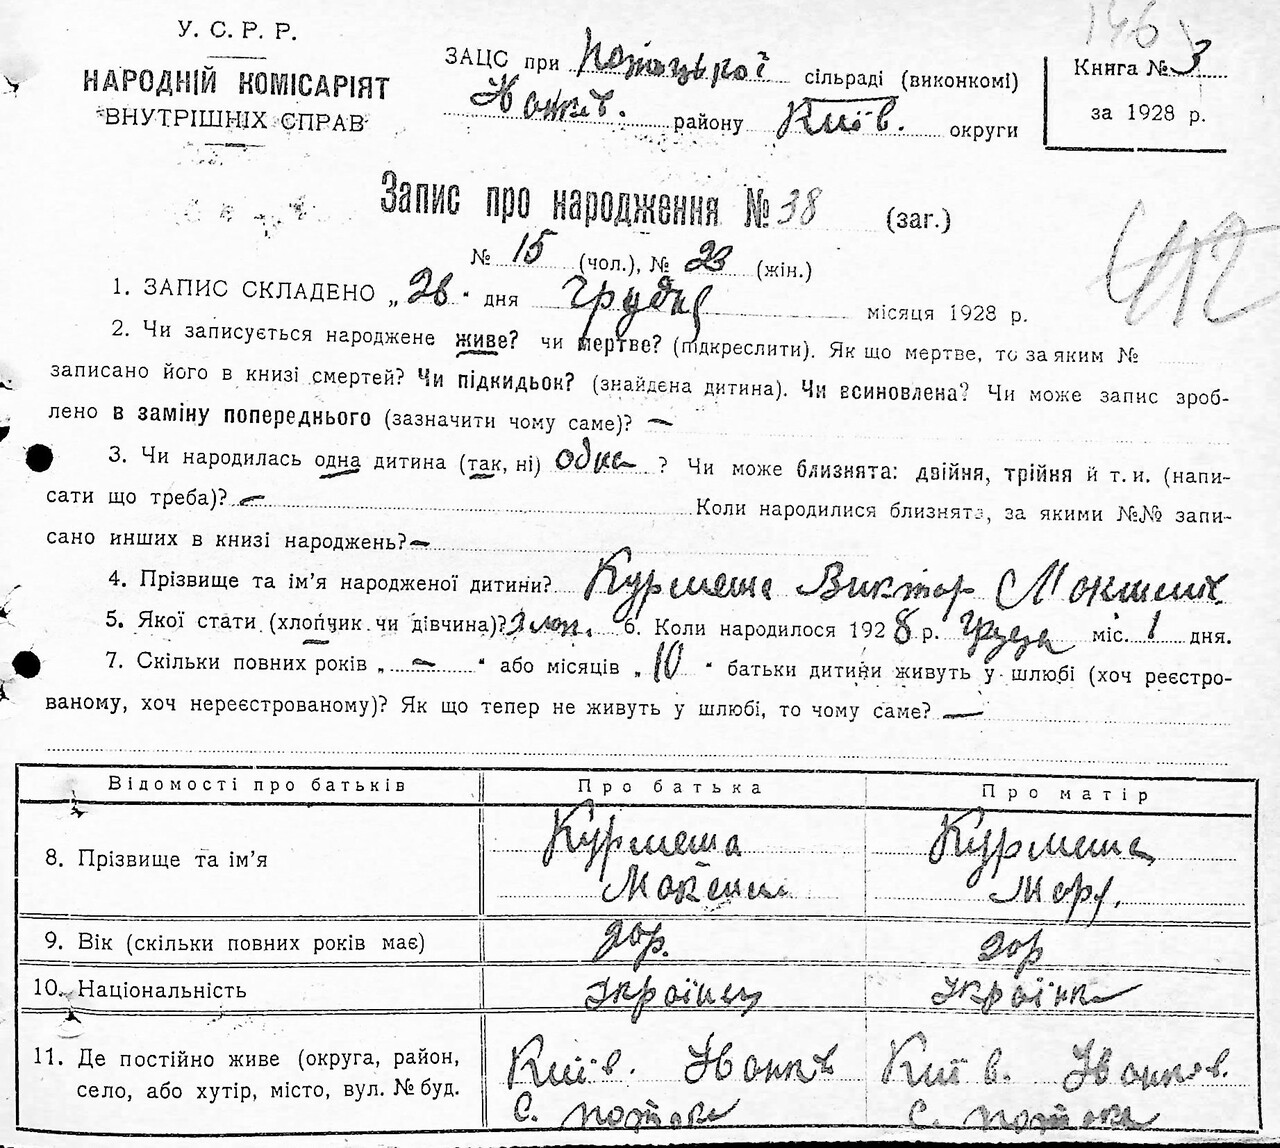 146
У. С. Р. Р.
НАРОДНІЙ КОМІСАРІЯТ
ВНУТРІШНІХ СПРАВ
ЗАЦС при сільраді (виконкомі)
Іванків. району Київ. округи
Книга № 3
за 1928 р.
Запис про народження № 38 (заг.)
412
№ 15 (чол.), № 23 (жін.)
1. ЗАПИС СКЛАДЕНО „26" дня Грудня місяця 1928 р.
2. Чи записується народжене живе? чи мертве? (підкреслити). Як що мертве, то за яким №
записано його в книзі смертей? Чи підкидьок? (знайдена дитина). Чи всиновлена? Чи може запис зроб-
лено в заміну попереднього (зазначити чому саме)? —
3. Чи народилась одна дитина (так, ні) одна ? Чи може близнята: двійня, трійня й т. и. (напи-
сати що треба)? — Коли народилися близнята, за якими №№ запи-
сано инших в книзі народжень? —
4. Прізвище та ім'я народженої дитини? Курмеша Виктор
5. Якої стати (хлопчик чи дівчина)? хлоп. 6. Коли народилося 1928 р. Грудня міс. 1 дня.
7. Скільки повних років „ — " або місяців „ 10 " батьки дитини живуть у шлюбі (хоч реєстро-
ваному, хоч нереєстрованому)? Як що тепер не живуть у шлюбі, то чому саме? —
Відомості про батьків Про батька Про матір
8. Прізвище та ім'я Курмеша Курмеша
9. Вік (скільки повних років має)
10. Національність Українец Українка
11. Де постійно живе (округа, район, Київ. Іванків Київ. Іванков.
село, або хутір, місто, вул. № буд. с. с.